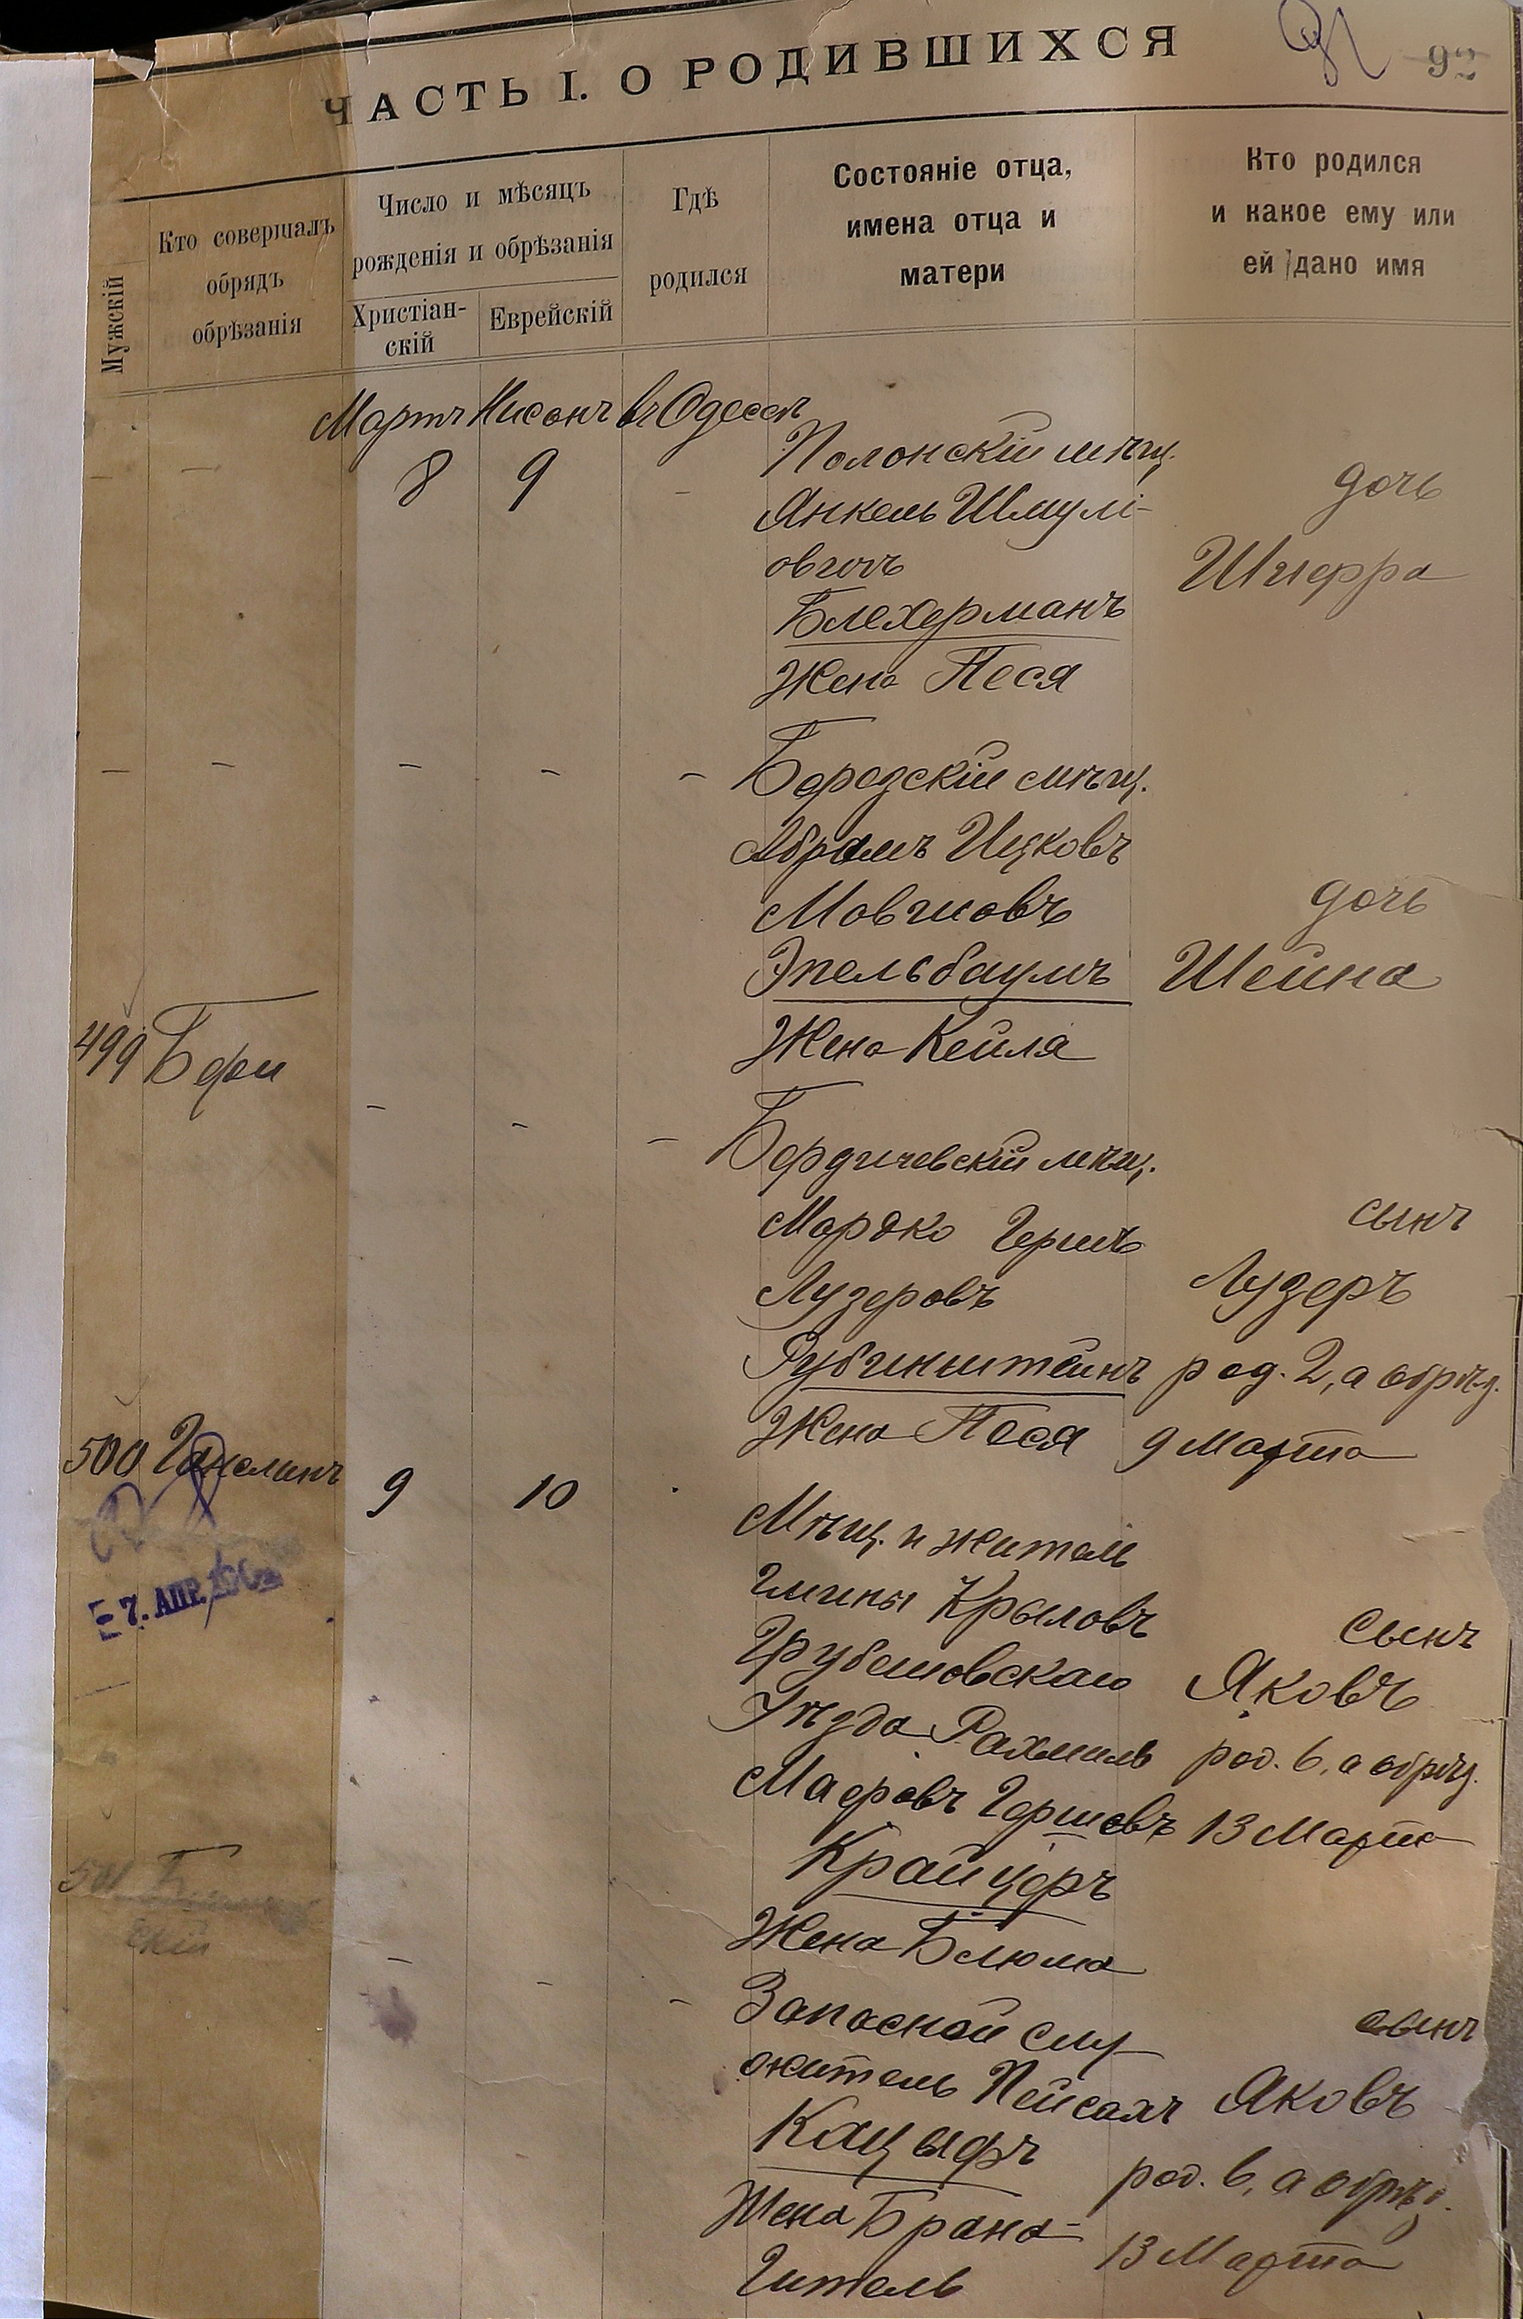 92
ЧАСТЬ I. О РОДИВШИХСЯ
Мужскій
Кто совершалъ
обрядъ
обрѣзанія
Число и мѣсяцъ
рожденія и обрѣзанія
Христіан-
скій
Еврейскій
Гдѣ
родился
Состояніе отца,
имена отца и
матери
Кто родился
и какое ему или
ей дано имя
Мартъ Нисонъ въ Одессѣ
— — 8 9 -
Полонскій мѣщ.
Янкель Шмулі-
овичъ
Блехерманъ
Жена Песя
дочь
Шифра
— — — — —
Бродскій мѣщ.
Абрамъ Ицковъ
Мовшовъ
Эпельбаумъ
Жена Кейля
дочь
Шейна
499 Бери
— — —
Бердичевскій мѣщ.
Мордко Гершъ
Лузеровъ
Рубинштейнъ
Жена Песя
сынъ
Лузеръ
род. 2, а обрѣз.
9 Марта
500
9 10
Мѣщ. и житель
Гмины Крыловъ
Грубешовскаго
Уѣзда Рахмиль
Маеровъ Гершовъ
Крайцеръ
Жена Блюма
сынъ
Яковъ
род. 6, а обрѣз.
13 Марта
7. АПР.
501
скій
— — —
Запасной слу
житель Пейсахъ
Кацыфъ
Жена Брана-
Гитель
сынъ
Яковъ
род. 6, а обрѣз.
13 Марта